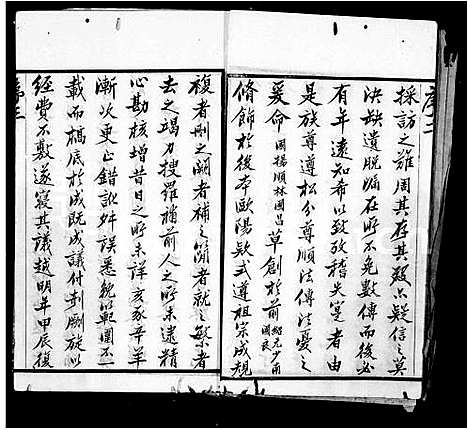 序二
採訪之難周其存其疑亦疑信之莫
決缺遺脫漏在所不免數傳而後必
有年遠知希以致攷稽失寔者由
是族尊遵松公尊順法傳法憂之
爰命國揚順林國昌草創於前紹元少甫國良
脩飾於後本歐陽欵式遵祖宗成規
複者刪之闕者補之簡者就之繁者
去之竭力搜羅補前人之所未逮精
心勘核增昔日之所未詳亥豕辛羊
漸次更正錯訛舛誤悉貌以範圍不一
載而稿底於成既成議付剞劂旋以
經費不敷遂寢其議越明年甲辰復
序三